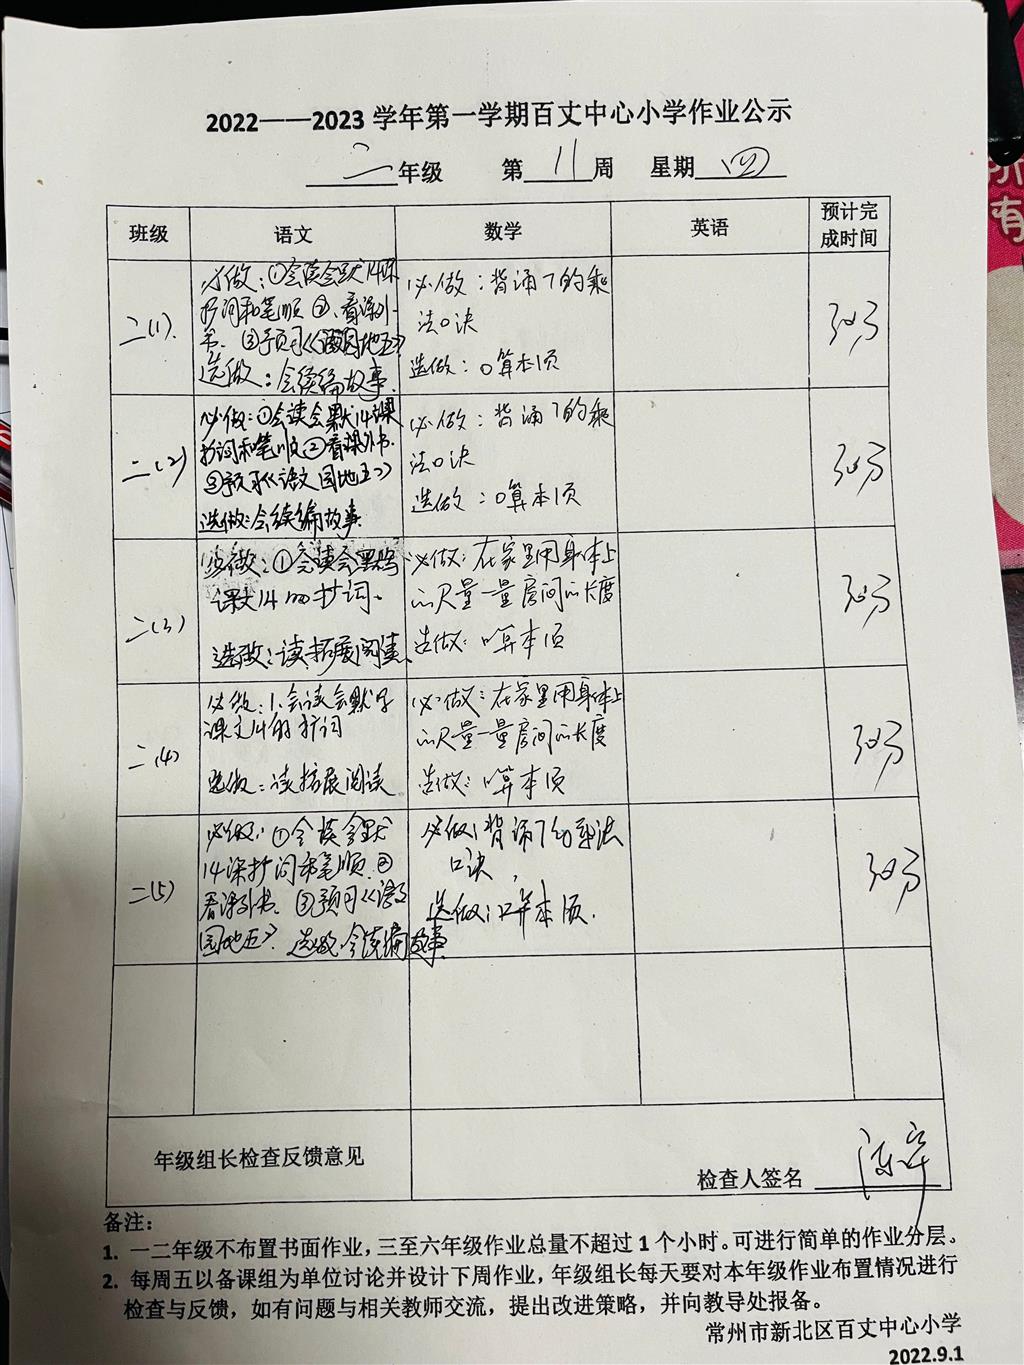 2022——2023学年第一学期百丈中心小学作业公示
二年级 第11周 星期四
班级 语文 数学 英语 预计完
成时间
二(1).
必做:①会读会默14课
抄词和笔顺②、看课外
书. ③预习《语文园地五》
选做:会续编故事.
必做:背诵7的乘
法口诀
选做:口算本1页
30分
二(2)
必做:①会读会默14课
抄词和笔顺②看课外书.
③预习《语文园地五》
选做:会续编故事.
必做:背诵7的乘
法口诀
选做:口算本1页
30分
二(3)
必做:①会读会默写
课文14的抄词.
选做:读拓展阅读.
必做:在家里用身体上
的尺量一量房间的长度
选做:口算本1页
30分
二(4)
必做:1.会读会默写
课文14的抄词
选做:读拓展阅读
必做:在家里用身体上
的尺量一量房间的长度
选做:口算本1页
30分
二(5)
必做:①会读会默
14课抄词和笔顺.②
看课外书.③预习《语文
园地五》. 选做.会续编故事.
必做:背诵7的乘法
口诀,
选做:口算本1页.
30分
年级组长检查反馈意见
检查人签名
备注:
1. 一二年级不布置书面作业,三至六年级作业总量不超过1个小时。可进行简单的作业分层。
2. 每周五以备课组为单位讨论并设计下周作业,年级组长每天要对本年级作业布置情况进行
检查与反馈,如有问题与相关教师交流,提出改进策略,并向教导处报备。
常州市新北区百丈中心小学
2022.9.1
所
有